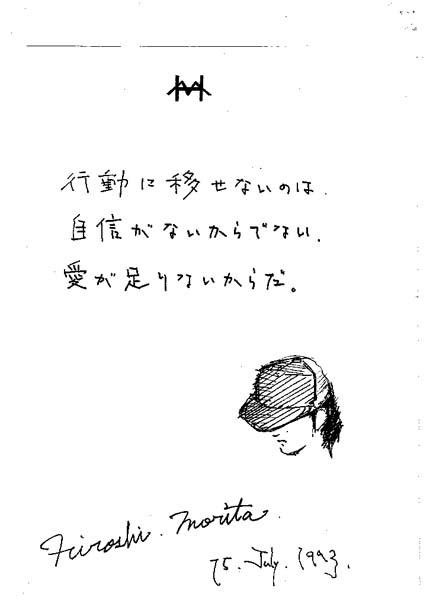 行動に移せないのは.
自信がないからでない.
愛が足りないからだ。
Hiroshi. Morita.
15. July. 1993.